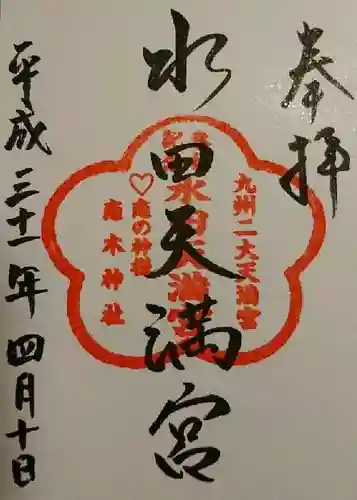 奉拝
水田天満宮
九州二大天満宮
水田天満宮
♡恋の神様
恋木神社
平成三十一年四月十日